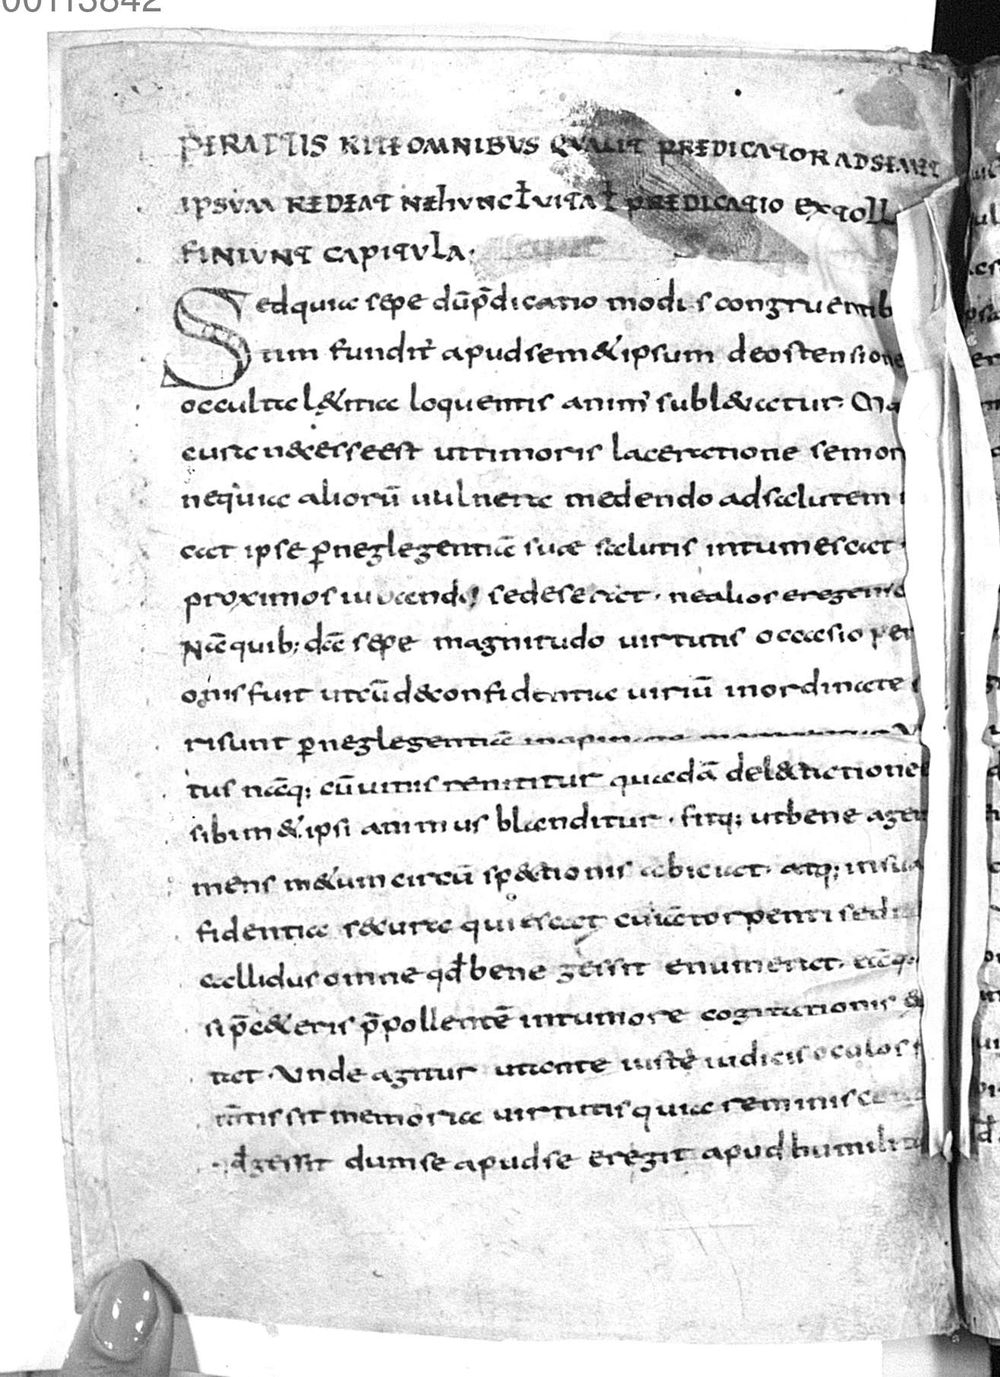 00113842
PERACTIS RITE OMNIBVS QVALIT PREDICATOR ADSEMET
IPSVM REDEAT NEhVNC ł VITA ł PREDICATIO EXTOLL
FINIVNT CAPITVLA·
Sed quia sepe dū p̄dicatio modis congruentib
tim fundit᷑ apud sem&ipsum de ostensione
occulta l&itia loquentis anim᷒ subleuatur· Ma
cura n&esse est ut timoris laceratione semor
ne qui aliorū uulnera medendo ad salutem
cat ipse ꝑ neglegentiā suae salutis intumescat·
proximos iuuando sedeserat· ne alios eregens
Nāquib; dā sepe magnitudo uirtutis occasio per
onis fuit ut cū de confidentia uiriū inordinate
risunt ꝑ neglegentiā
tus nāq; cū uitiis renititur quadā del&atione
sibim&ipsi animus blanditur· fitq; ut bene agen
mens m&um circū sp&tionis abiciat· atq; in sua
fidentia s&ura quiescat cui iā torpenti sedu
callidus omne qd̄ bene gessit enumerat· eāq;
si p̄ c&eris p̄pollentē in tumore cogitationis &
tat· Vnde agitur ut ante iusti iudicis oculos
mtis sit memoria uirtutis quia reminiscen
qd̄ gessit dum se apud se eregit apud humilita